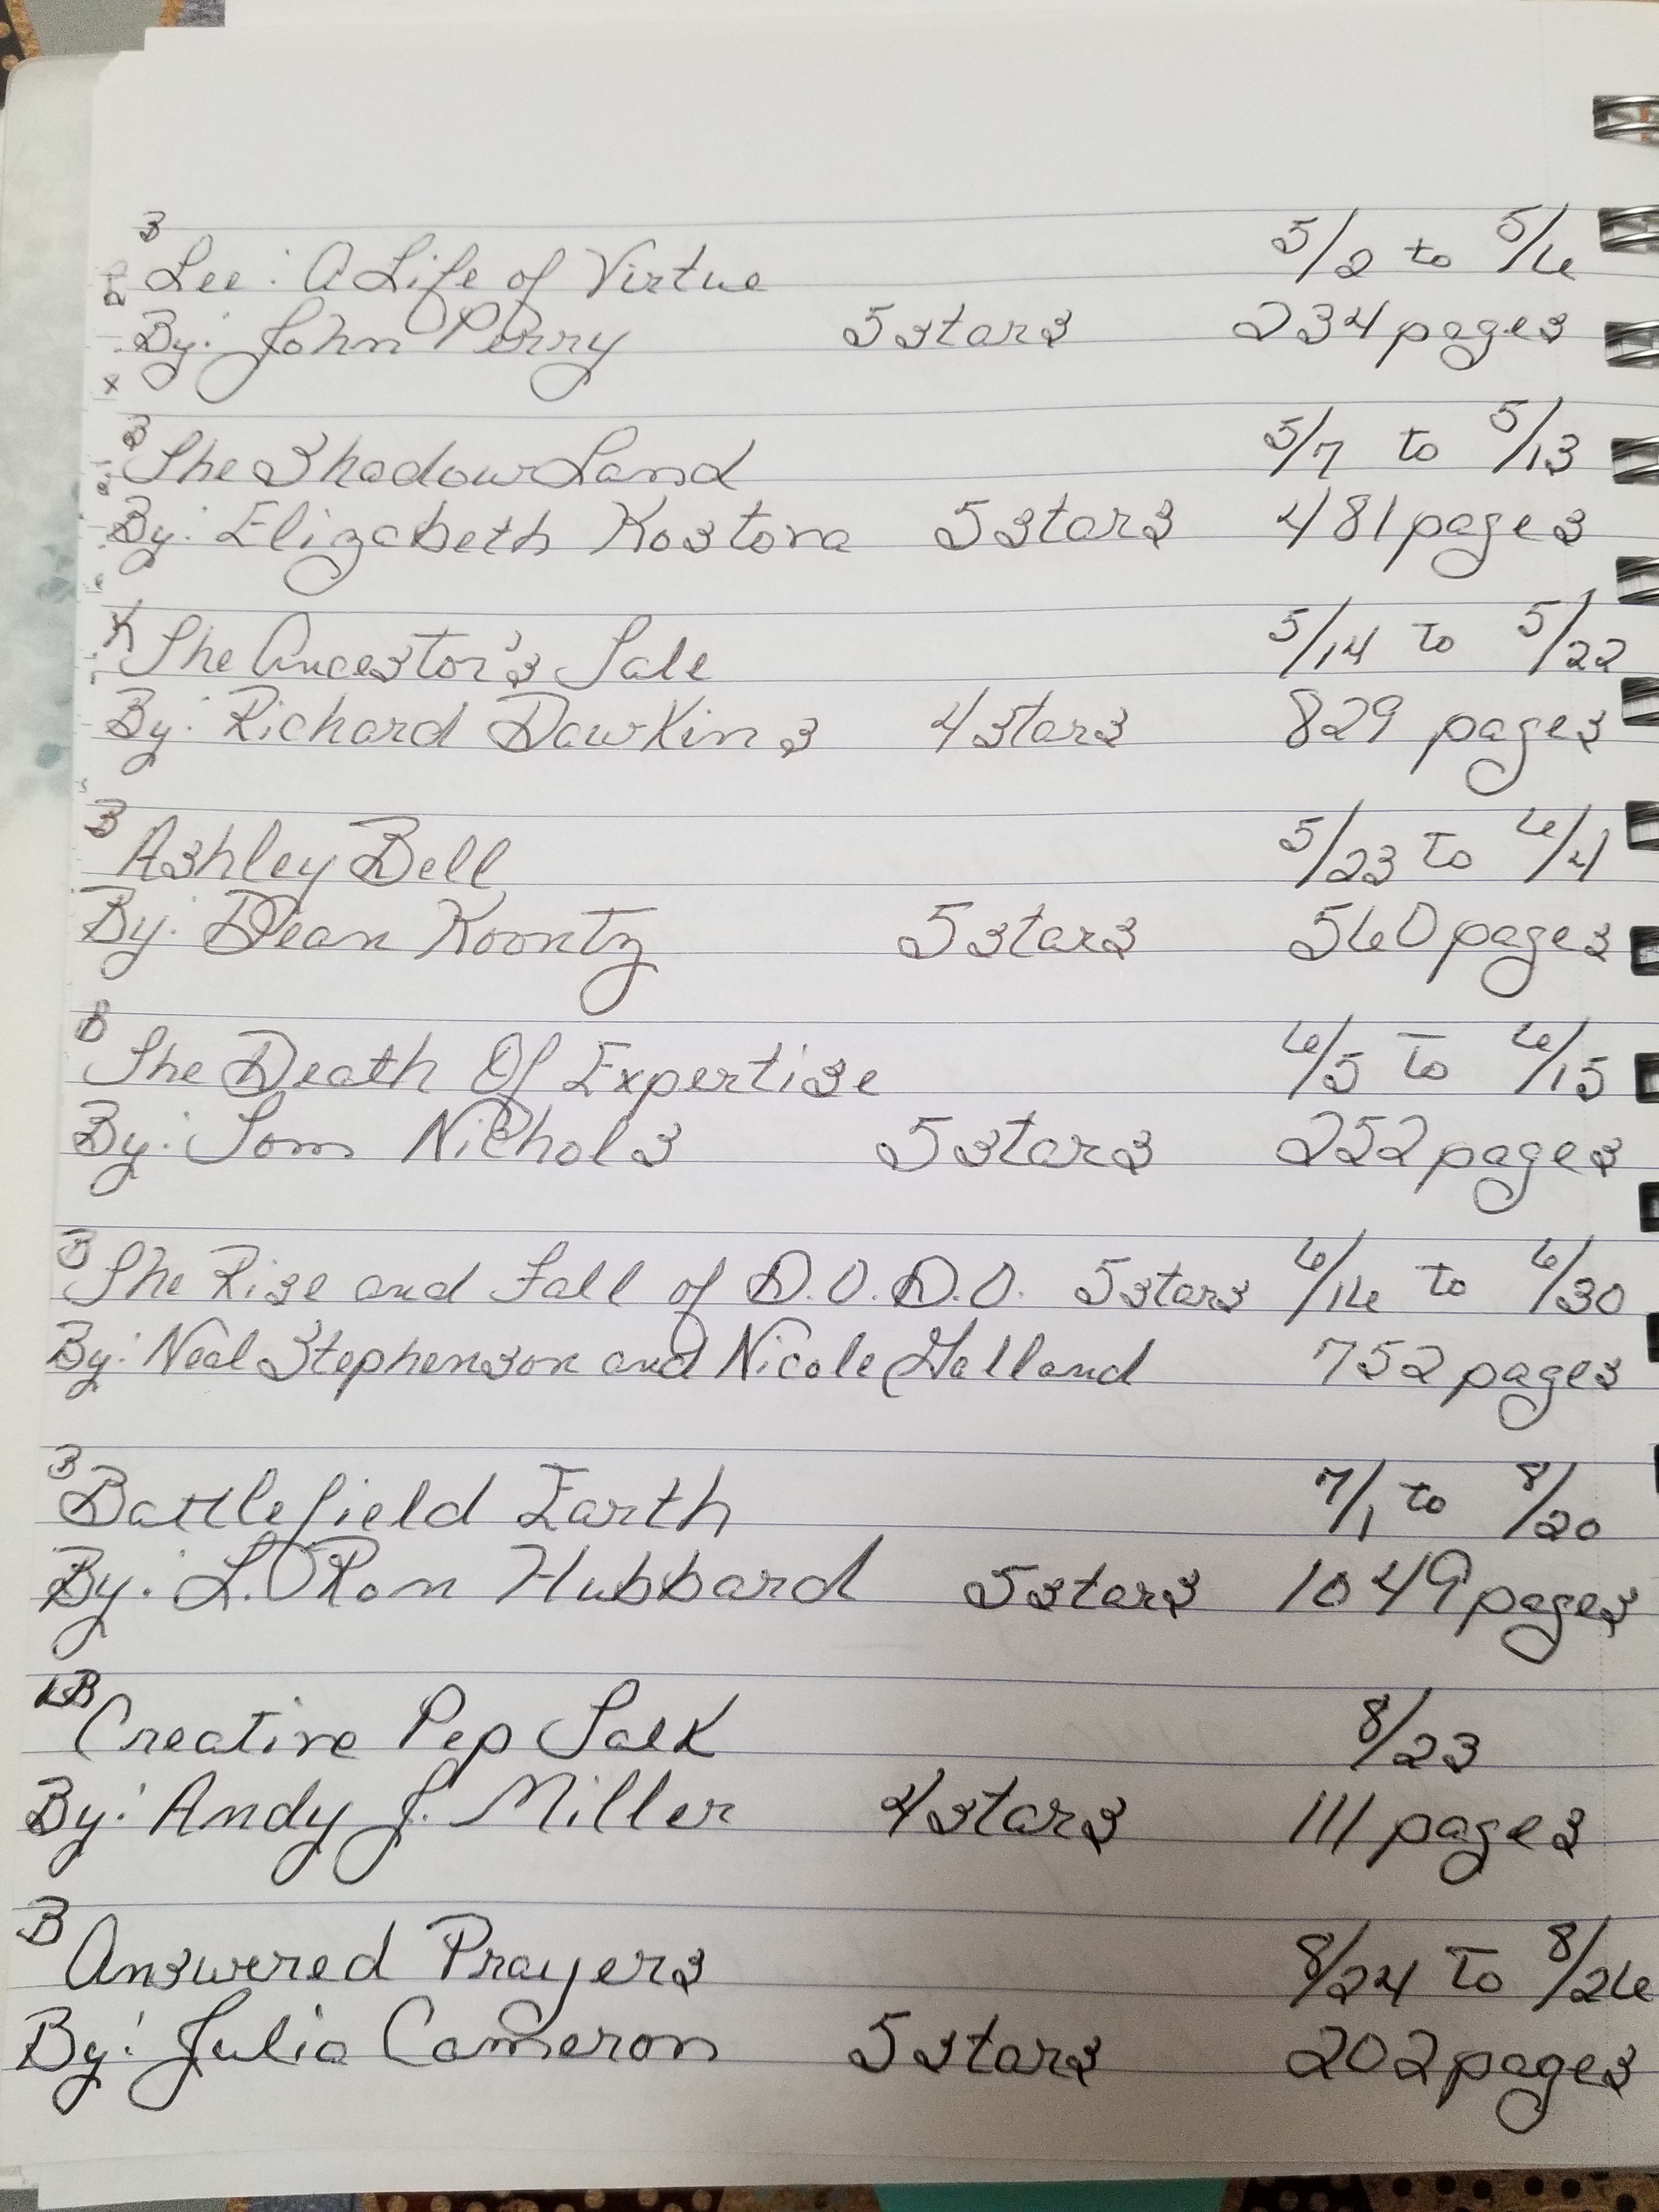 B
Lee: A Life of Virtue 5/2 to 5/6
By: John Perry 5 stars 234 pages
B
The Shadow Land 5/7 to 5/13
By: Elizabeth Kostova 5 stars 481 pages
K
The Ancestor's Tale 5/14 to 5/22
By: Richard Dawkins 4 stars 829 pages
B
Ashley Bell 5/23 to 6/4
By: Dean Koontz 5 stars 560 pages
B
The Death Of Expertise 6/5 to 6/15
By: Tom Nichols 5 stars 252 pages
B
The Rise and Fall of D.O.D.O. 5 stars 6/16 to 6/30
By: Neal Stephenson and Nicole Galland 752 pages
B
Battlefield Earth 7/1 to 8/20
By: L. Ron Hubbard 5 stars 1049 pages
LB
Creative Pep Talk 8/23
By: Andy J. Miller 4 stars 111 pages
B
Answered Prayers 8/24 to 8/26
By: Julia Cameron 5 stars 202 pages